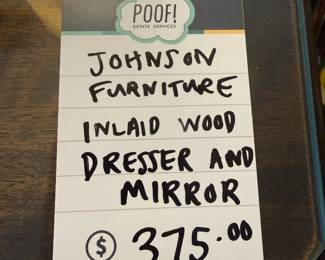 POOF!
ESTATE SERVICES
JOHNSON
FURNITURE
INLAID WOOD
DRESSER AND
MIRROR
$ 375.00